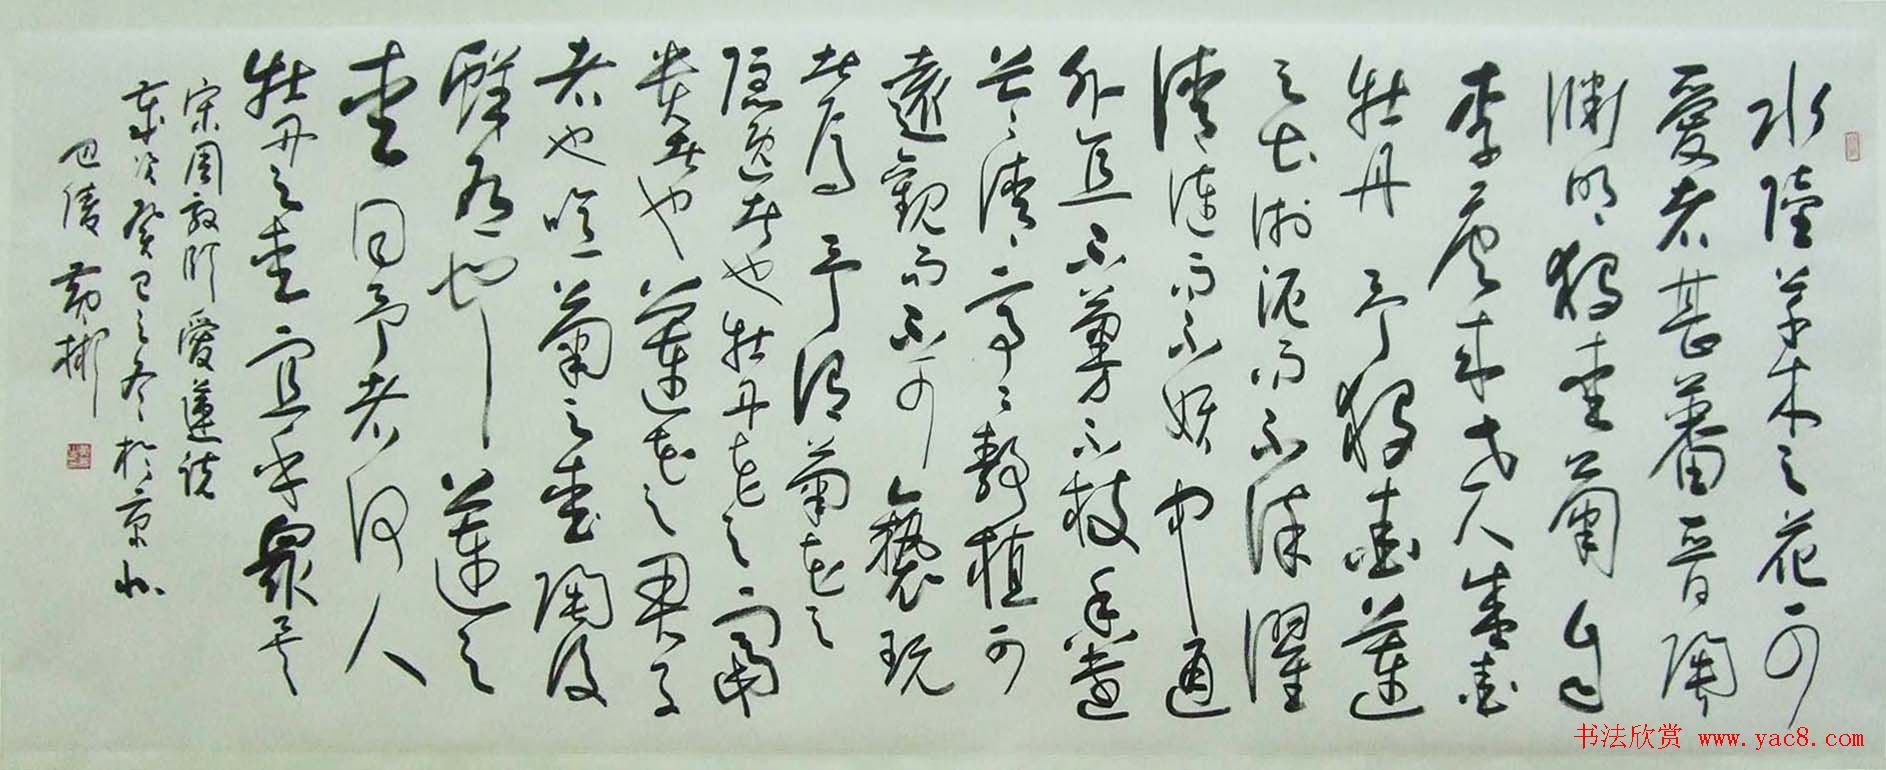 水陸草木之花可
愛者甚蕃晋陶
渊明独爱菊自
李唐来世人盛爱
牡丹予独爱蓮
之出淤泥而不染濯
清涟而不妖中通
外直不蔓不枝香遠
益清亭亭静植可
遠觀而不可褻玩
者焉予谓菊花之
隐逸者也牡丹花之富
贵者也蓮花之君子
者也噫菊之爱陶後
鲜有闻蓮之
爱同予者何人
牡丹之爱宜乎眾矣
宋周敦颐愛蓮说
岁次癸巳之冬於京北
巴陵彬
书法欣赏 www.yac8.com